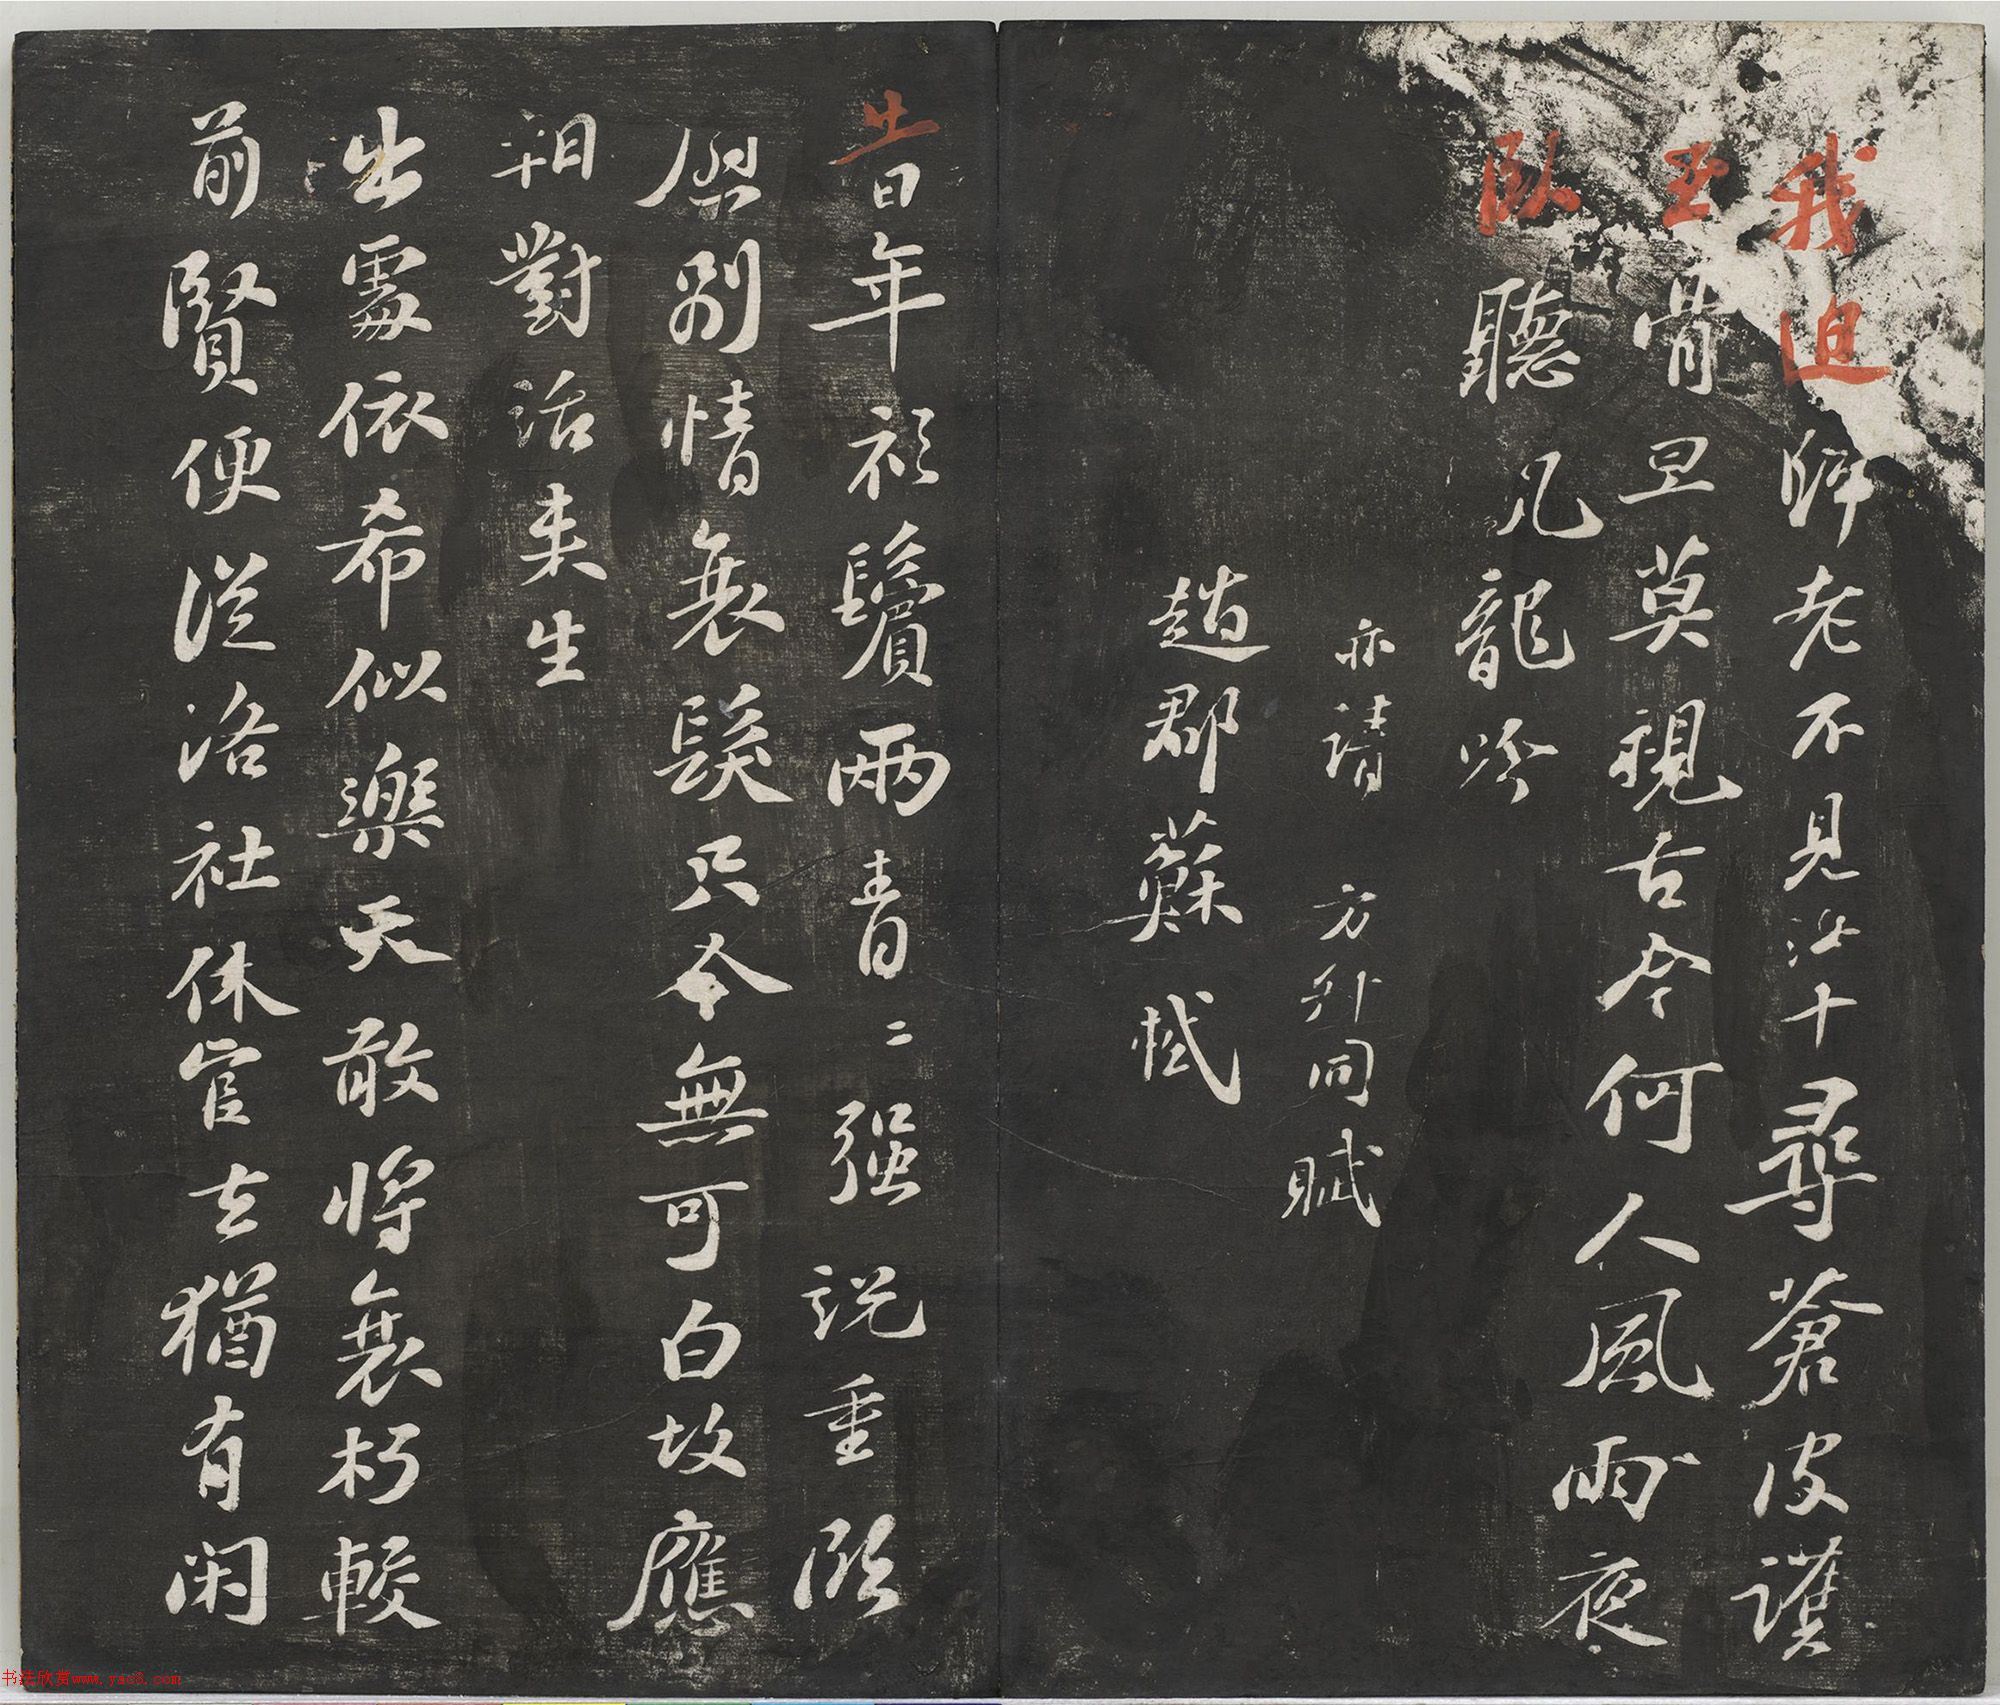 我迫歸老不見汝十尋蒼皮護
玉骨旦莫視古今何人風雨夜
臥聽龍吟
亦請 方同賦
趙郡蘇軾
昔年衫鬢兩青〻强說重臨
慰別情衰髮只今無可白故應
相對話来生
出處依希似樂天敢將衰朽較
前賢便從洛社休官去猶有閑
书法欣赏www.yac8.com